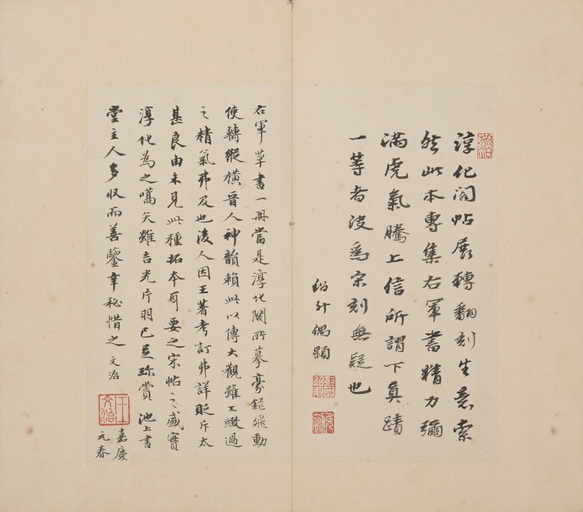 淳化閣帖展轉翻刻生意索
然此本專集右軍書精力彌
滿虎氣騰上信所謂下真蹟
一等者決為宋刻無疑也
右軍草書一冊當是淳化閣所摹豪鋩飛動
使轉縱橫晉人神韻賴此以傳大觀雖工緻過
之精氣弗及也後人因王著考訂弗詳貶斥太
甚良由未見此種拓本耳要之宋帖之盛實
淳化為之嚆矢雖吉光片羽已足珍賞池上書
堂主人多收而善鑒幸秘惜之文治
嘉慶
元春
王
文治